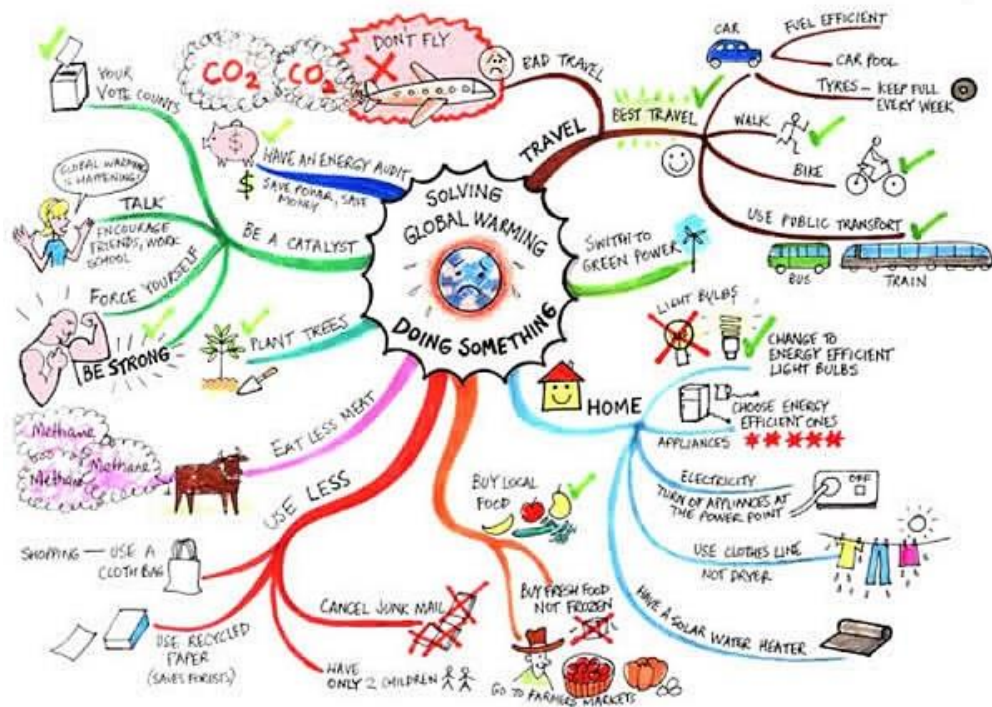 SOLVING
GLOBAL WARMING
DOING SOMETHING
TRAVEL
BAD TRAVEL
DON'T FLY
CO2
CO2
BEST TRAVEL
CAR
FUEL EFFICIENT
CAR POOL
TYRES – KEEP FULL
EVERY WEEK
WALK
BIKE
USE PUBLIC TRANSPORT
BUS
TRAIN
SWITH TO
GREEN POWER
HOME
LIGHT BULBS
CHANGE TO
ENERGY EFFICIENT
LIGHT BULBS
CHOOSE ENERGY
EFFICIENT ONES
APPLIANCES
ELECTRICITY
TURN OF APPLIANCES AT
THE POWER POINT
OFF
USE CLOTHES LINE
NOT DRYER
HAVE A SOLAR WATER HEATER
BUY LOCAL
FOOD
BUY FRESH FOOD
NOT FROZEN
GO TO FARMERS MARKETS
USE LESS
SHOPPING — USE A
CLOTH BAG
USE RECYCLED
PAPER
(SAVES FORISTS)
CANCEL JUNK MAIL
HAVE
ONLY 2 CHILDREN
EAT LESS MEAT
Methane
Methane
Methane
PLANT TREES
BE A CATALYST
YOUR
VOTE COUNTS
TALK
ENCOURAGE
FRIENDS, WORK
SCHOOL
GLOBAL WARMING
IS HAPPENING!
FORCE YOURSELF
BE STRONG
HAVE AN ENERGY AUDIT
SAVE POWAR, SAVE
MONEY
$
$